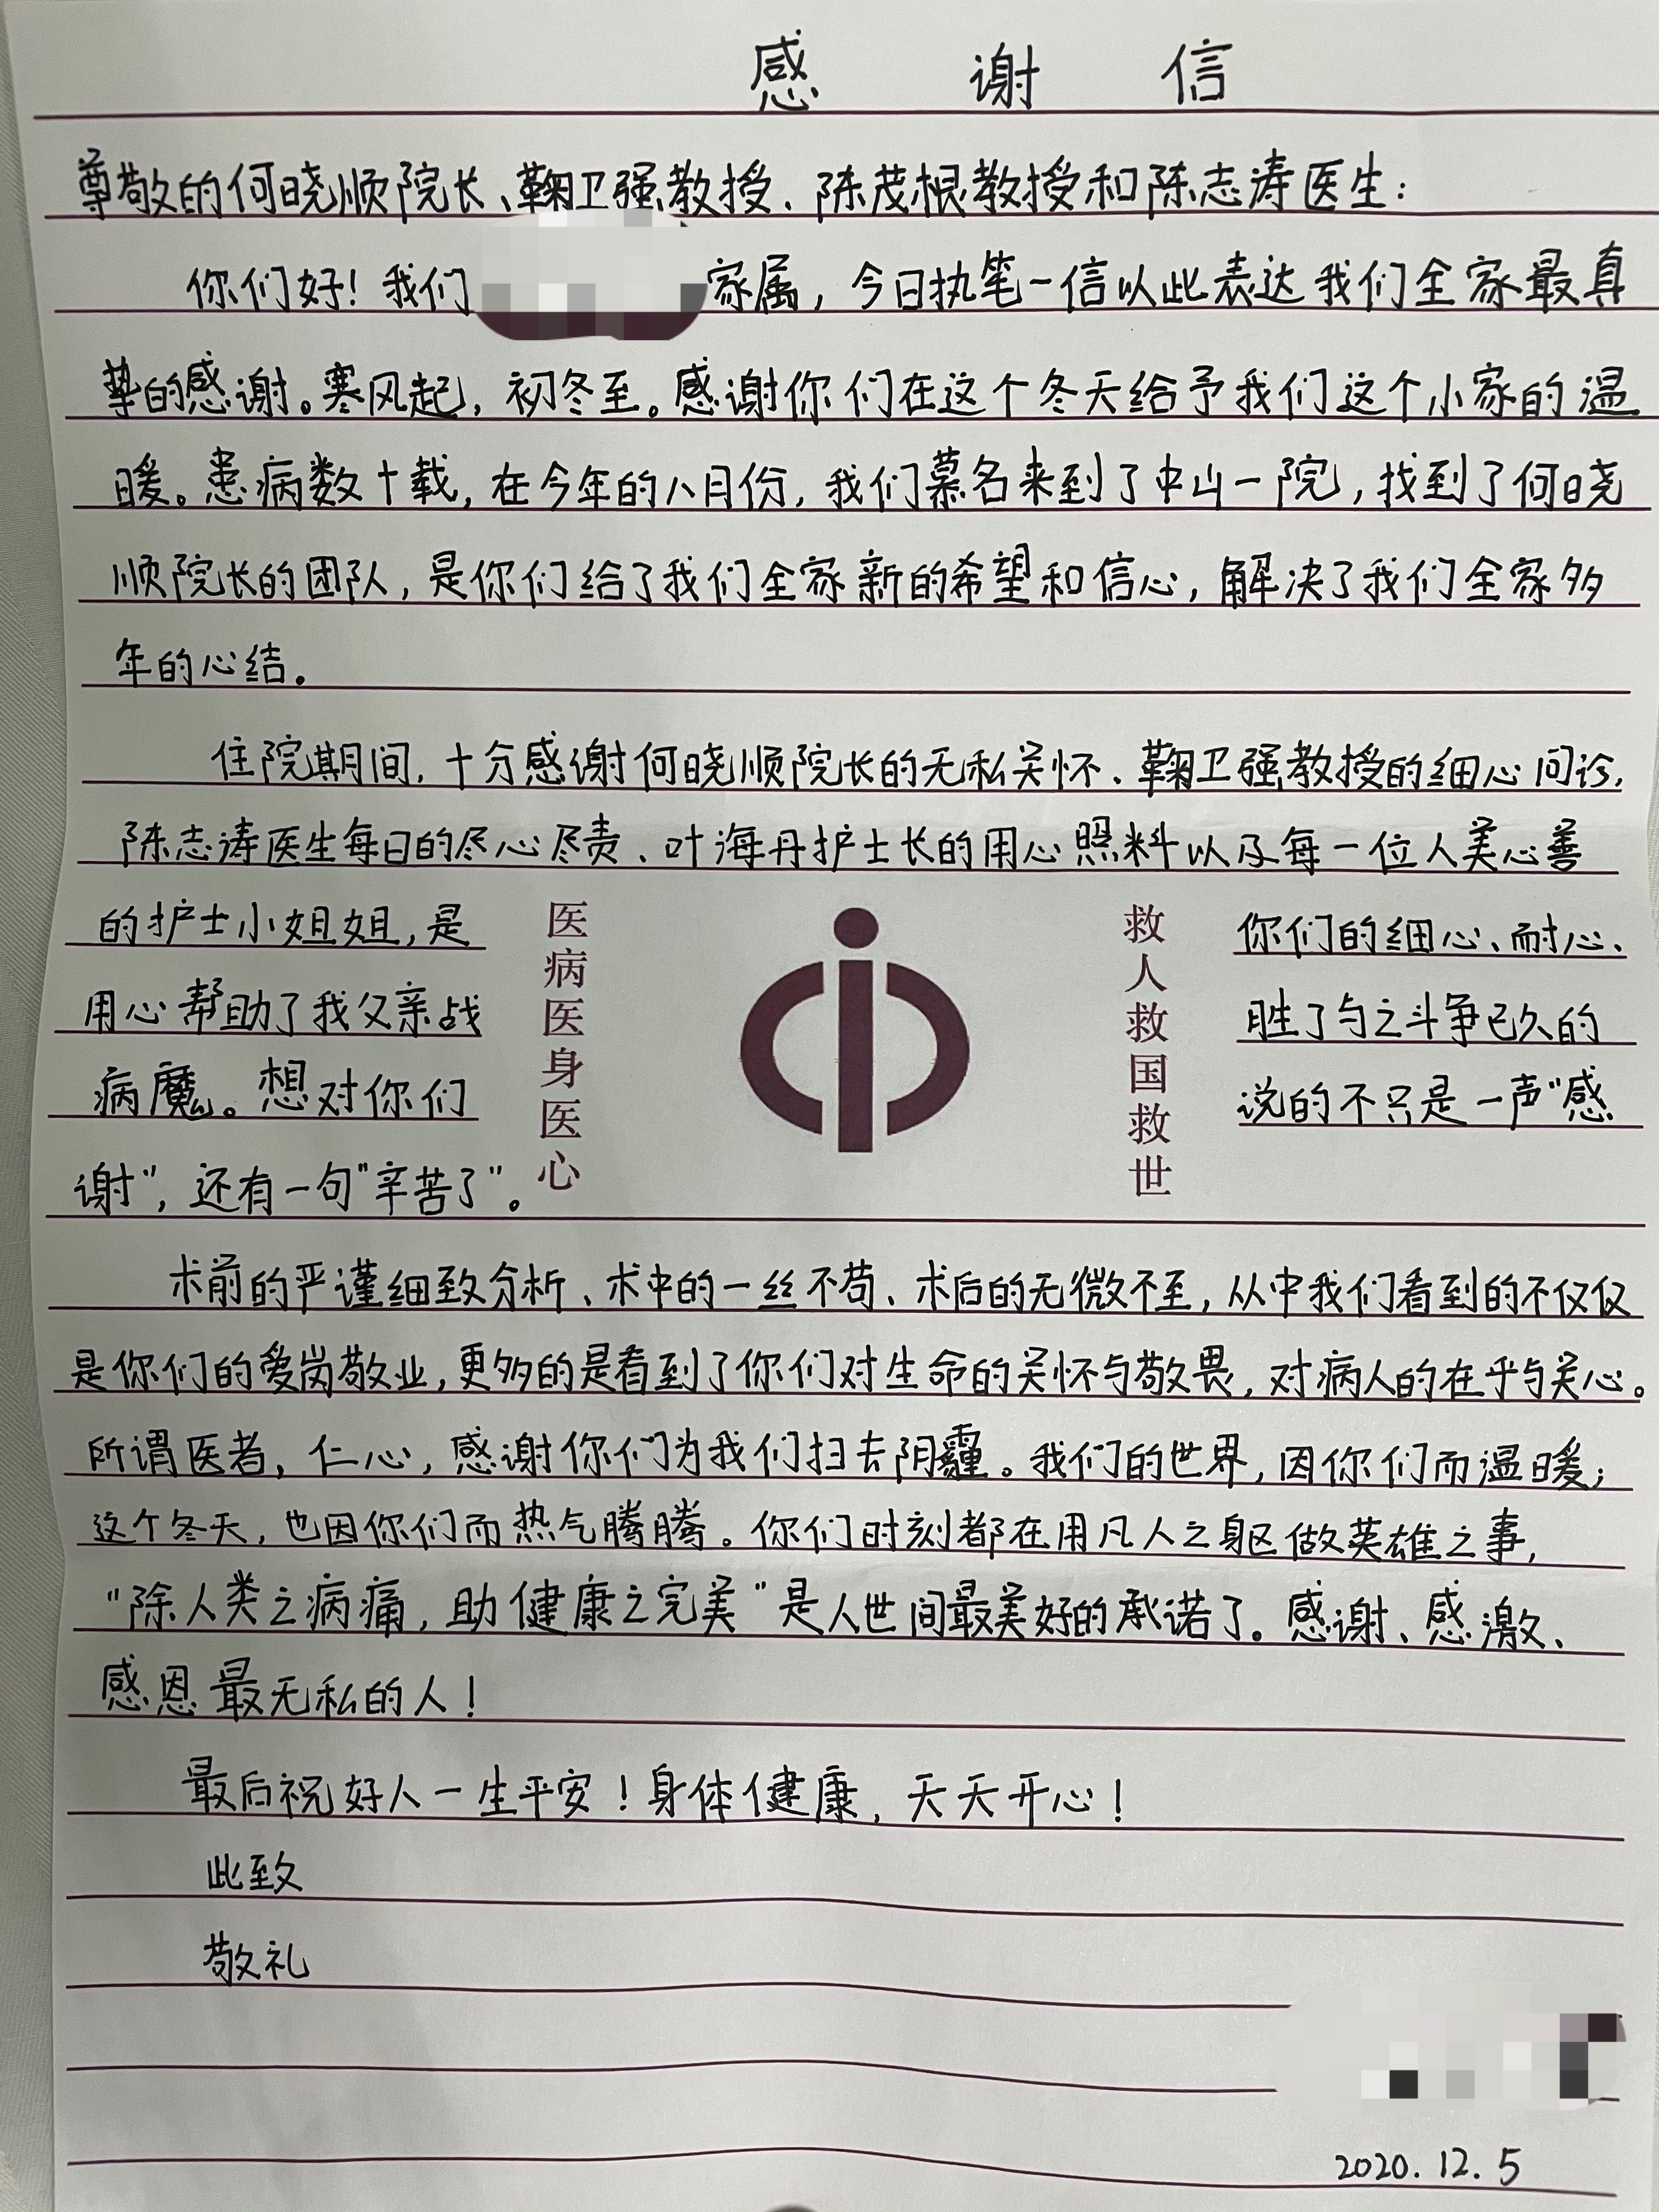 感谢信
尊敬的何晓顺院长、鞠卫强教授、陈茂根教授和陈志涛医生:
你们好!我们 家属,今日执笔一信以此表达我们全家最真
挚的感谢。寒风起,初冬至。感谢你们在这个冬天给予我们这个小家的温
暖。患病数十载,在今年的八月份,我们慕名来到了中山一院,找到了何晓
顺院长的团队,是你们给了我们全家新的希望和信心,解决了我们全家多
年的心结。
住院期间,十分感谢何晓顺院长的无私关怀、鞠卫强教授的细心问诊,
陈志涛医生每日的尽心尽责、叶海丹护士长的用心照料以及每一位人美心善
的护士小姐姐,是你们的细心、耐心、
用心帮助了我父亲战胜了与之斗争已久的
病魔。想对你们说的不只是一声"感
谢",还有一句"辛苦了"。
医病医身医心
救人救国救世
术前的严谨细致分析、术中的一丝不苟、术后的无微不至,从中我们看到的不仅仅
是你们的爱岗敬业,更多的是看到了你们对生命的关怀与敬畏,对病人的在乎与关心。
所谓医者,仁心,感谢你们为我们扫去阴霾。我们的世界,因你们而温暖;
这个冬天,也因你们而热气腾腾。你们时刻都在用凡人之身躯做英雄之事,
"除人类之病痛,助健康之完美"是人世间最美好的承诺了。感谢、感激、
感恩最无私的人!
最后祝好人一生平安!身体健康,天天开心!
此致
敬礼
2020.12.5